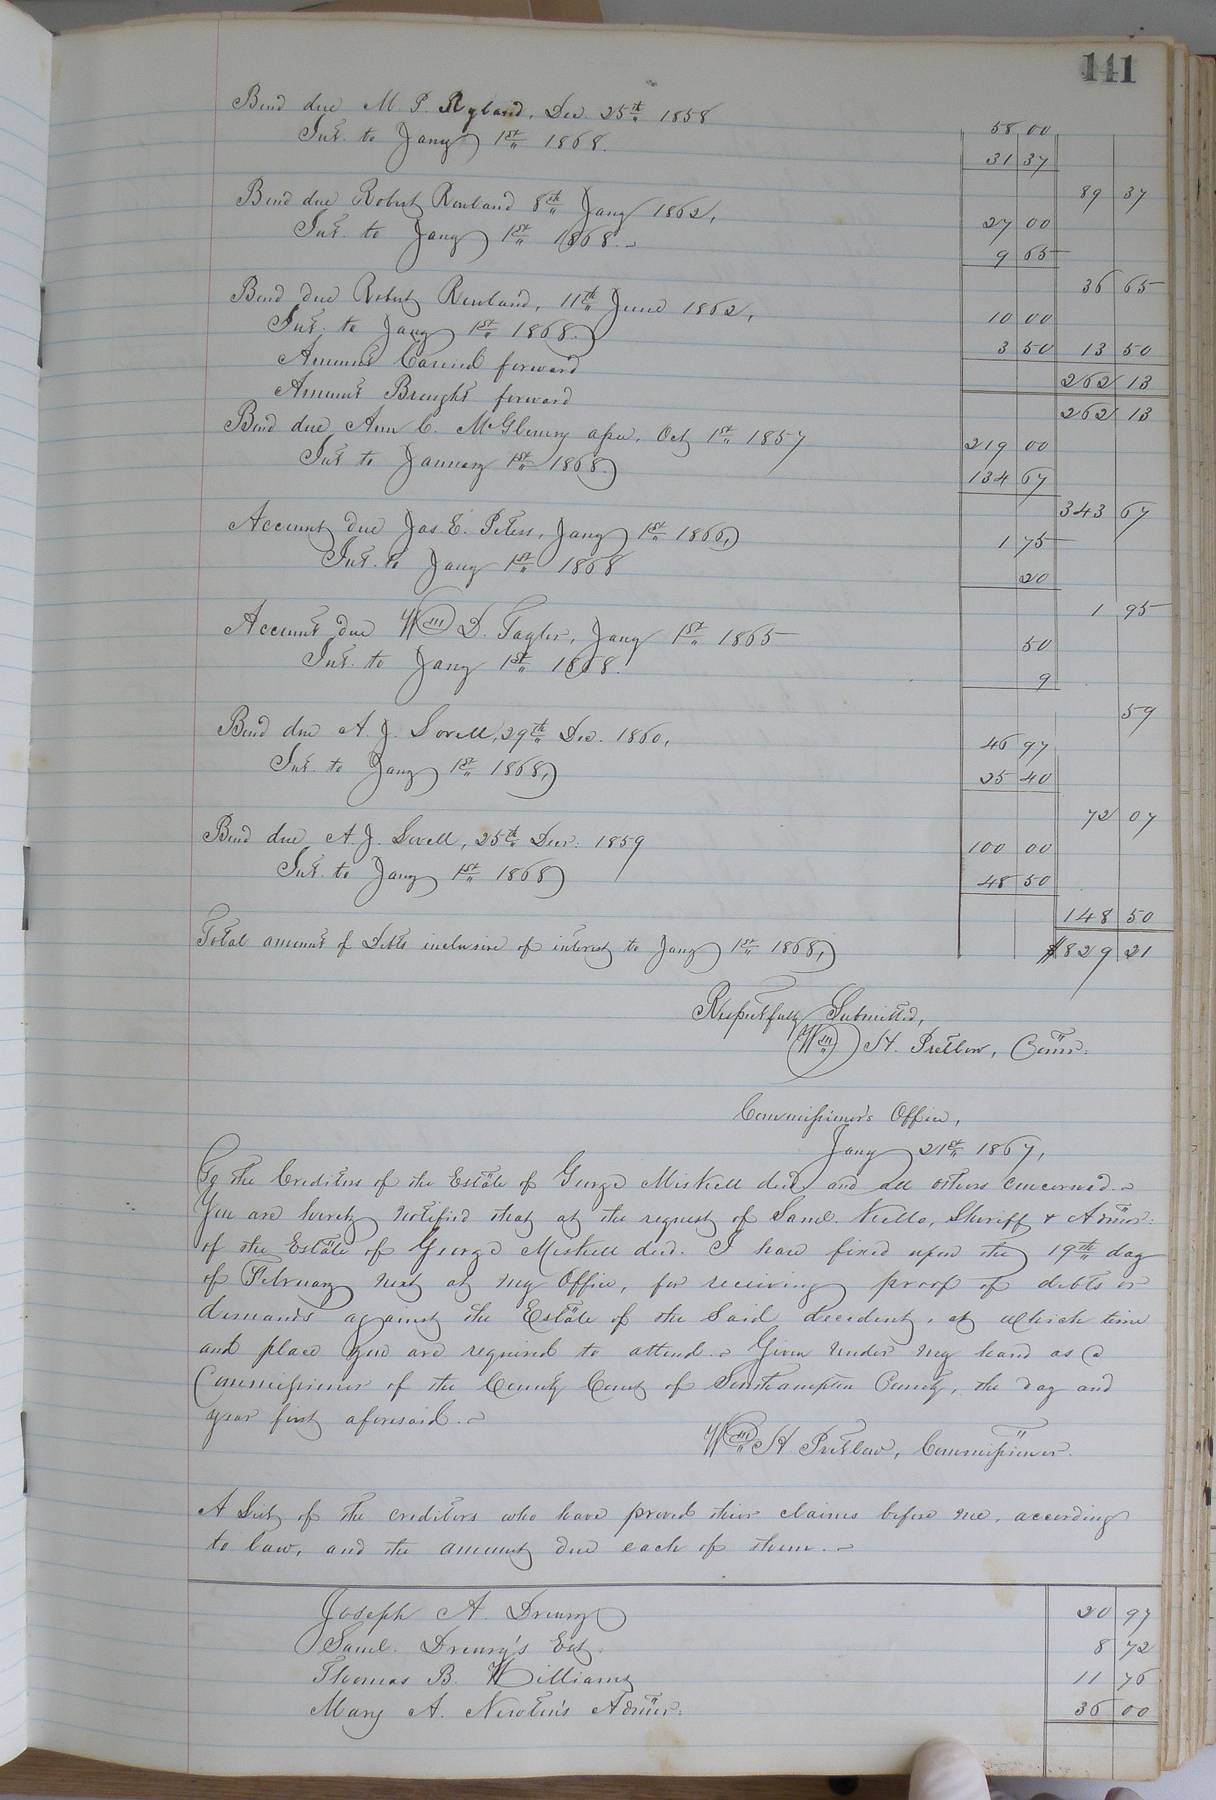 141
Bond due M. P. Ryland, Dec. 25th 1858 58 00
Int. to Jany 1st 1868. 31 37
89 37
Bond due Robert Rowland 8th Jany 1862, 27 00
Int. to Jany 1st 1868. 9 65
36 65
Bond due Robert Rowland, 11th June 1862, 10 00
Int. to Jany 1st 1868. 3 50 13 50
Amount Carried forward 262 13
Amount Brought forward 262 13
Bond due Ann C. Oct 1st 1857 219 00
Int to January 1st 1868 134 67
343 67
Account due Jas. E. Peters, Jany 1st 1866, 1 75
Int. to Jany 1st 1868 20
1 95
Account due Wm D. Taylor, Jany 1st 1865 50
Int. to Jany 1st 1868. 9
59
Bond due A. J. Sorell, 29th Dec. 1860, 46 97
Int. to Jany 1st 1868, 25 40
72 07
Bond due A. J. Sorell, 25th Decr. 1859 100 00
Int. to Jany 1st 1868 48 50
148 50
Total amount of Debts inclusive of interest to Jany 1st 1868, $829 21
Respectfully Submitted,
Wm H. Pretlow, Comr.
Commissioner's Office,
Jany 21st 1867,
To the Creditors of the Estate of George Miskell decd. and all others concerned.
You are hereby notified that at the request of Saml. Kello, Sheriff & Admor.
of the Estate of George Miskell decd. I have fixed upon the 19th day
of February next at my Office, for receiving proof of debts or
demands against the Estate of the said decedent, at which time
and place you are required to attend. Given under my hand as a
Commissioner of the County Court of Southampton County, the day and
year first aforesaid.
Wm H Pretlow, Commissioner.
A List of the creditors who have proved their claims before me, according
to law, and the amount due each of them.
Joseph A. Drewry 20 97
Saml. Drewry's Est. 8 72
Thomas B. Williams 11 76
Mary A. Newton's Admor. 36 00